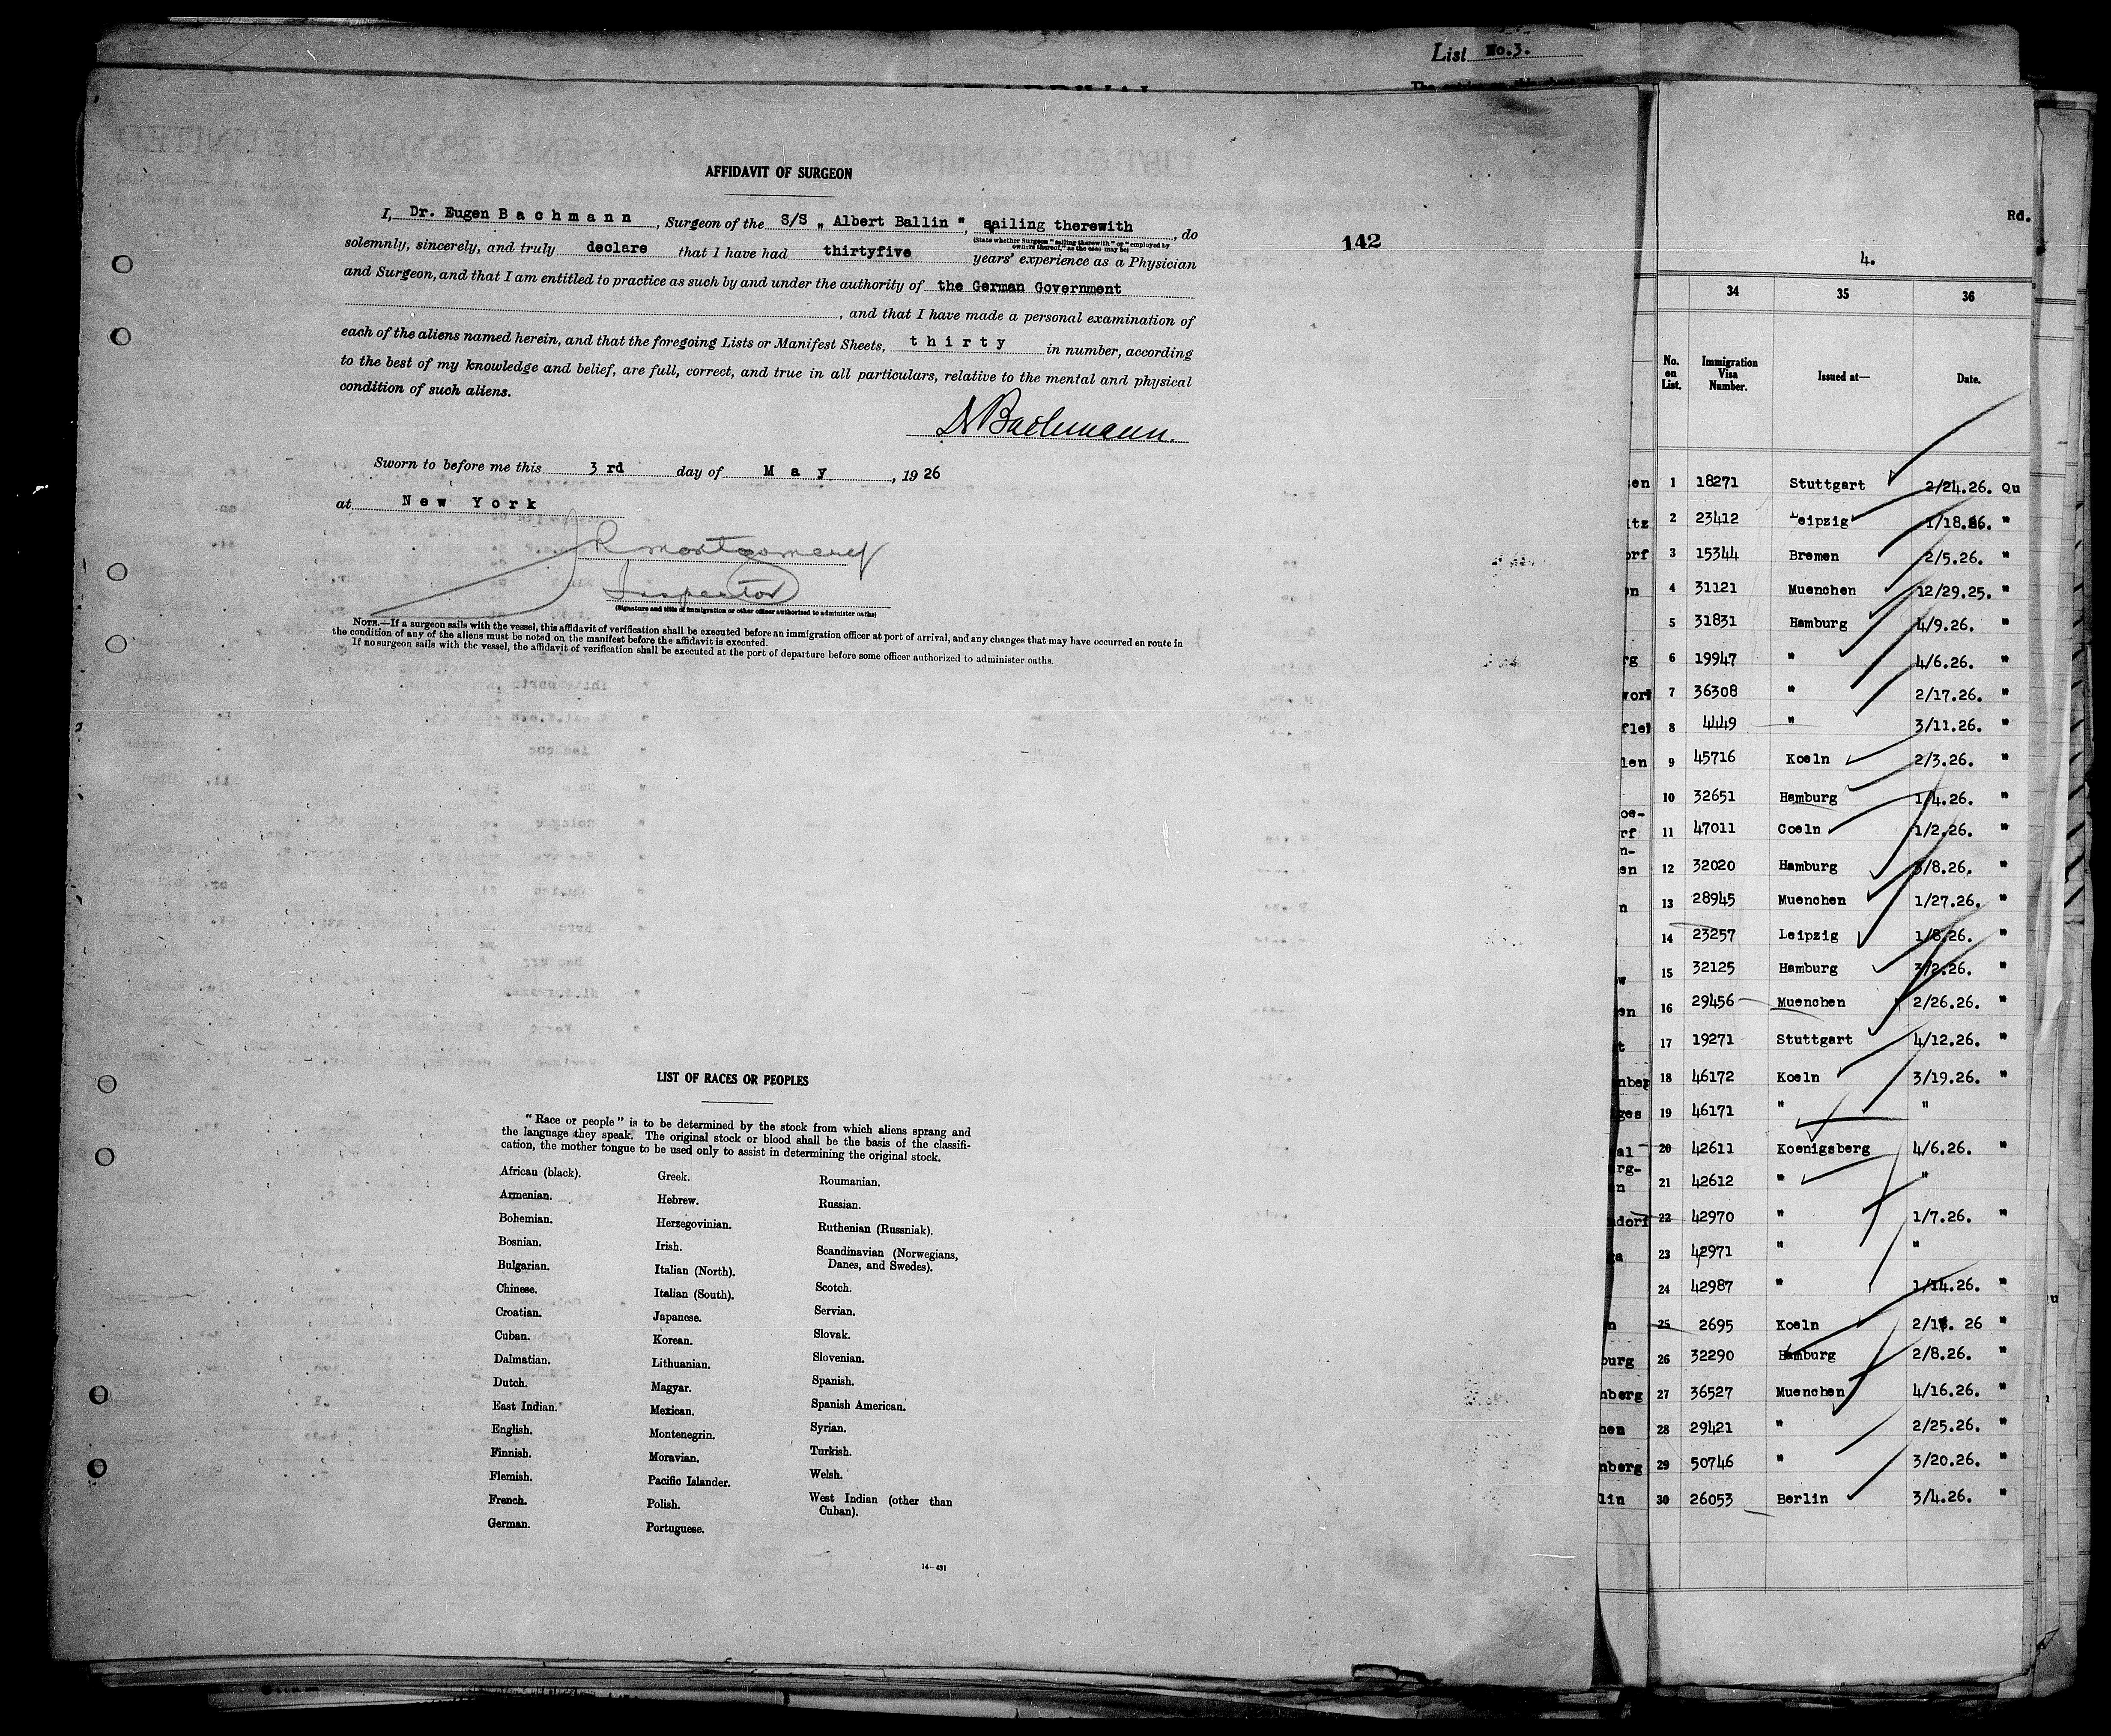 List No.3.
AFFIDAVIT OF SURGEON
I, Dr. Eugen Bachmann, Surgeon of the S/S „ Albert Ballin ", sailing therewith, do
(State whether Surgeon "sailing therewith" or "employed by owners thereof," as the case may be)
solemnly, sincerely, and truly declare that I have had thirtyfive years' experience as a Physician
and Surgeon, and that I am entitled to practice as such by and under the authority of the German Government
, and that I have made a personal examination of
each of the aliens named herein, and that the foregoing Lists or Manifest Sheets, thirty in number, according
to the best of my knowledge and belief, are full, correct, and true in all particulars, relative to the mental and physical
condition of such aliens.
Dr Bachmann.
Sworn to before me this 3 rd day of May, 19 26
at New York
JR Montgomery
Inspector
(Signature and title of immigration or other officer authorized to administer oaths)
NOTE.—If a surgeon sails with the vessel, this affidavit of verification shall be executed before an immigration officer at port of arrival, and any changes that may have occurred en route in
the condition of any of the aliens must be noted on the manifest before the affidavit is executed.
If no surgeon sails with the vessel, the affidavit of verification shall be executed at the port of departure before some officer authorized to administer oaths.
142
LIST OF RACES OR PEOPLES
"Race or people" is to be determined by the stock from which aliens sprang and
the language they speak. The original stock or blood shall be the basis of the classifi-
cation, the mother tongue to be used only to assist in determining the original stock.
African (black).
Armenian.
Bohemian.
Bosnian.
Bulgarian.
Chinese.
Croatian.
Cuban.
Dalmatian.
Dutch.
East Indian.
English.
Finnish.
Flemish.
French.
German.
Greek.
Hebrew.
Herzegovinian.
Irish.
Italian (North).
Italian (South).
Japanese.
Korean.
Lithuanian.
Magyar.
Mexican.
Montenegrin.
Moravian.
Pacific Islander.
Polish.
Portuguese.
Roumanian.
Russian.
Ruthenian (Russniak).
Scandinavian (Norwegians,
Danes, and Swedes).
Scotch.
Servian.
Slovak.
Slovenian.
Spanish.
Spanish American.
Syrian.
Turkish.
Welsh.
West Indian (other than
Cuban).
14—431
Rd.
4.
34 35 36
No. on List. Immigration Visa Number. Issued at— Date.
1 18271 Stuttgart 2/24.26. Qu
2 23412 Leipzig 1/18.26. "
3 15344 Bremen 2/5.26. "
4 31121 Muenchen 12/29.25. "
5 31831 Hamburg 4/9.26. "
6 19947 " 4/6.26. "
7 36308 " 2/17.26. "
8 4449 " 3/11.26. "
9 45716 Koeln 2/3.26. "
10 32651 Hamburg 1/4.26. "
11 47011 Coeln 1/2.26. "
12 32020 Hamburg 3/8.26. "
13 28945 Muenchen 1/27.26. "
14 23257 Leipzig 1/8.26. "
15 32125 Hamburg 3/2.26. "
16 29456 Muenchen 2/26.26. "
17 19271 Stuttgart 4/12.26. "
18 46172 Koeln 3/19.26. "
19 46171 " "
20 42611 Koenigsberg 4/6.26. "
21 42612 " "
22 42970 " 1/7.26. "
23 42971 " "
24 42987 " 1/14.26. "
25 2695 Koeln 26 "
26 32290 Hamburg 2/8.26. "
27 36527 Muenchen 4/16.26. "
28 29421 " 2/25.26. "
29 50746 " 3/20.26. "
30 26053 Berlin 3/4.26. "